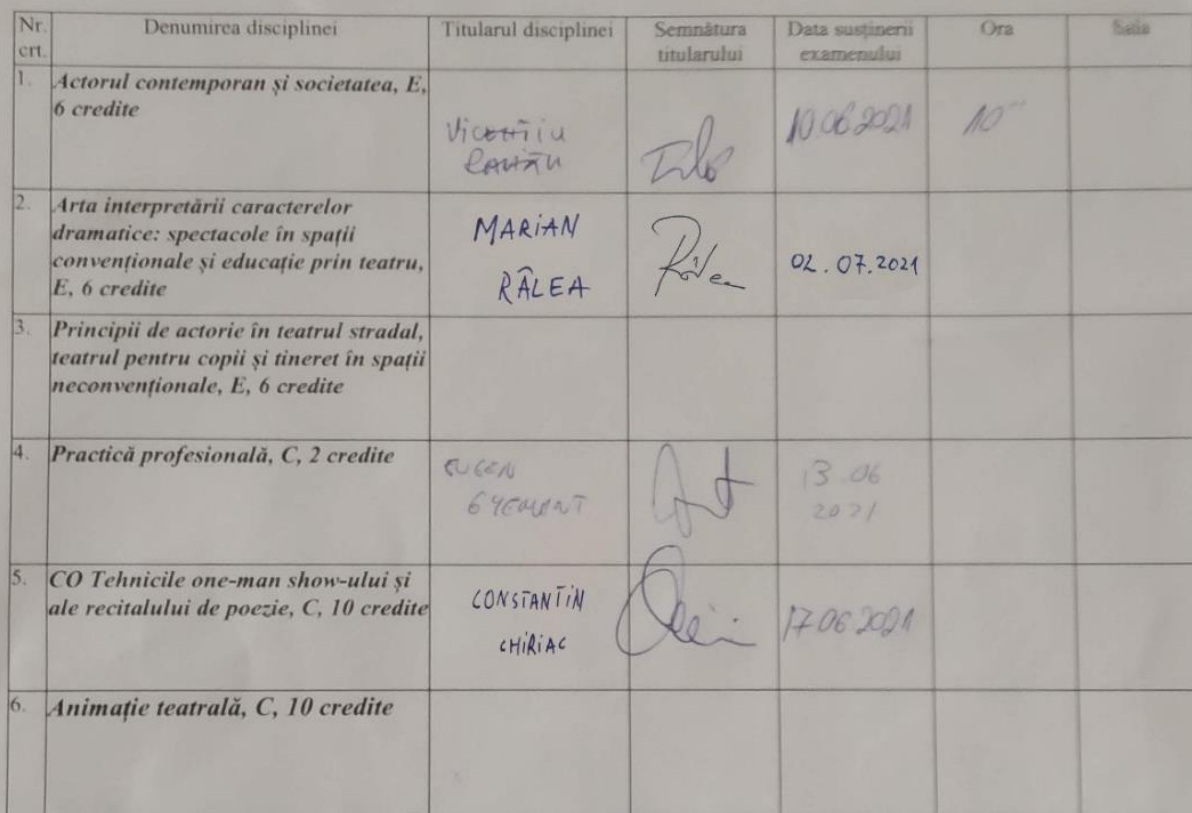 Nr. crt.
Denumirea disciplinei
Titularul disciplinei
Semnătura titularului
Data susținerii examenului
Ora
Sala
1.
Actorul contemporan și societatea, E,
6 credite
10 06 2021
10
2.
Arta interpretării caracterelor
dramatice: spectacole în spații
convenționale și educație prin teatru,
E, 6 credite
MARIAN
RÂLEA
02.07.2021
3.
Principii de actorie în teatrul stradal,
teatrul pentru copii și tineret în spații
neconvenționale, E, 6 credite
4.
Practică profesională, C, 2 credite
EUGEN
GYEMANT
13 06
2021
5.
CO Tehnicile one-man show-ului și
ale recitalului de poezie, C, 10 credite
CONSTANTIN
CHIRIAC
17.06.2021
6.
Animație teatrală, C, 10 credite